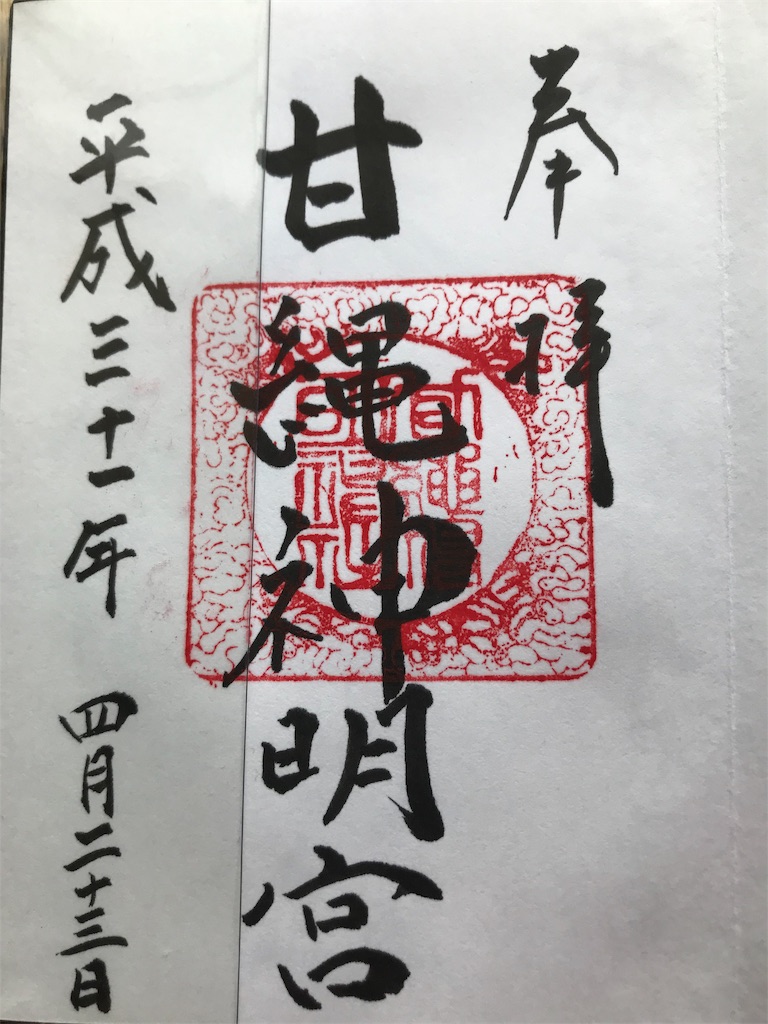 奉拝
甘縄神明宮
平成三十一年 四月二十三日